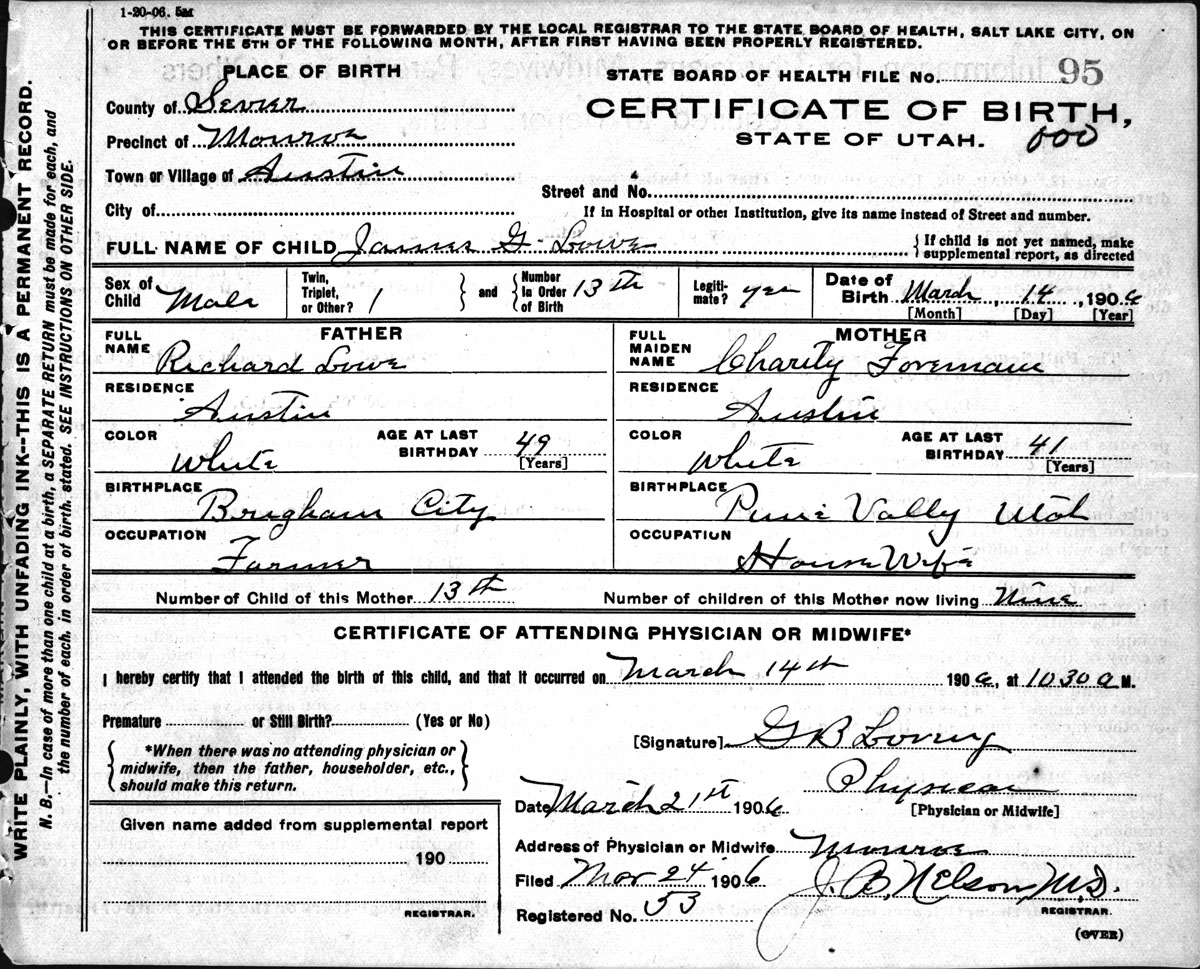 1-20-06. 5M
THIS CERTIFICATE MUST BE FORWARDED BY THE LOCAL REGISTRAR TO THE STATE BOARD OF HEALTH, SALT LAKE CITY, ON
OR BEFORE THE 5TH OF THE FOLLOWING MONTH, AFTER FIRST HAVING BEEN PROPERLY REGISTERED.
PLACE OF BIRTH
STATE BOARD OF HEALTH FILE No. 95
County of Sevier
CERTIFICATE OF BIRTH,
Precinct of Monroe
STATE OF UTAH. 000
Town or Village of Austin
Street and No.
City of
If in Hospital or other Institution, give its name instead of Street and number.
FULL NAME OF CHILD James G. Lowe
{ If child is not yet named, make
supplemental report, as directed
Sex of Child Male
Twin, Triplet, or Other? 1 } and { Number in Order of Birth 13th
Legiti-mate? yes
Date of Birth March, 14, 1906
[Month] [Day] [Year]
FATHER
FULL NAME Richard Lowe
RESIDENCE
Austin
COLOR White
AGE AT LAST BIRTHDAY 49 [Years]
BIRTHPLACE
Brigham City
OCCUPATION
Farmer
MOTHER
FULL MAIDEN NAME Charity Foremam
RESIDENCE
Austin
COLOR White
AGE AT LAST BIRTHDAY 41 [Years]
BIRTHPLACE
Pine Vally Utah
OCCUPATION
House Wife
Number of Child of this Mother 13th
Number of children of this Mother now living Nine
CERTIFICATE OF ATTENDING PHYSICIAN OR MIDWIFE*
I hereby certify that I attended the birth of this child, and that it occurred on March 14th 1906, at 10 30 a M.
Premature or Still Birth? (Yes or No)
{ *When there was no attending physician or
midwife, then the father, householder, etc.,
should make this return. }
[Signature] G B Lowry
Physician
[Physician or Midwife]
Date March 21st 1906
Given name added from supplemental report
190
REGISTRAR.
Address of Physician or Midwife Monroe
Filed Mar 24 1906
J. B. Nelson, M.D.
REGISTRAR.
Registered No. 53
(OVER)
WRITE PLAINLY, WITH UNFADING INK--THIS IS A PERMANENT RECORD.
N. B.—In case of more than one child at a birth, a SEPARATE RETURN must be made for each, and
the number of each, in order of birth, stated. SEE INSTRUCTIONS ON OTHER SIDE.